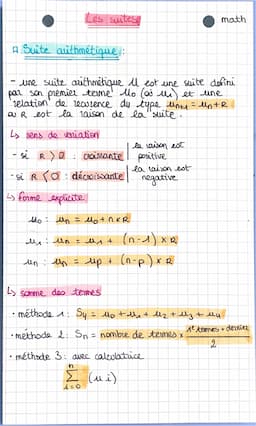 Les suites
math
Suite arithmétique :
- une suite arithmétique U est une suite défini
par son premier terme U0 (où U1) et une
relation de récurence du type Un+1 = Un + R
où R est la raison de la suite.
↳ sens de variation
- si R > 0 : croissante | la raison est positive
- si R < 0 : décroissante | la raison est négative
↳ forme explicite
U0 : Un = U0 + n x R
U1 : Un = U1 + (n-1) x R
Un : Un = Up + (n-p) x R
↳ somme des termes
• méthode 1 : S4 = U0 + U1 + U2 + U3 + U4
• méthode 2 : Sn = nombre de termes x (1er termes + dernier) / 2
• méthode 3 : avec calculatrice
n
Σ (U i)
i=0